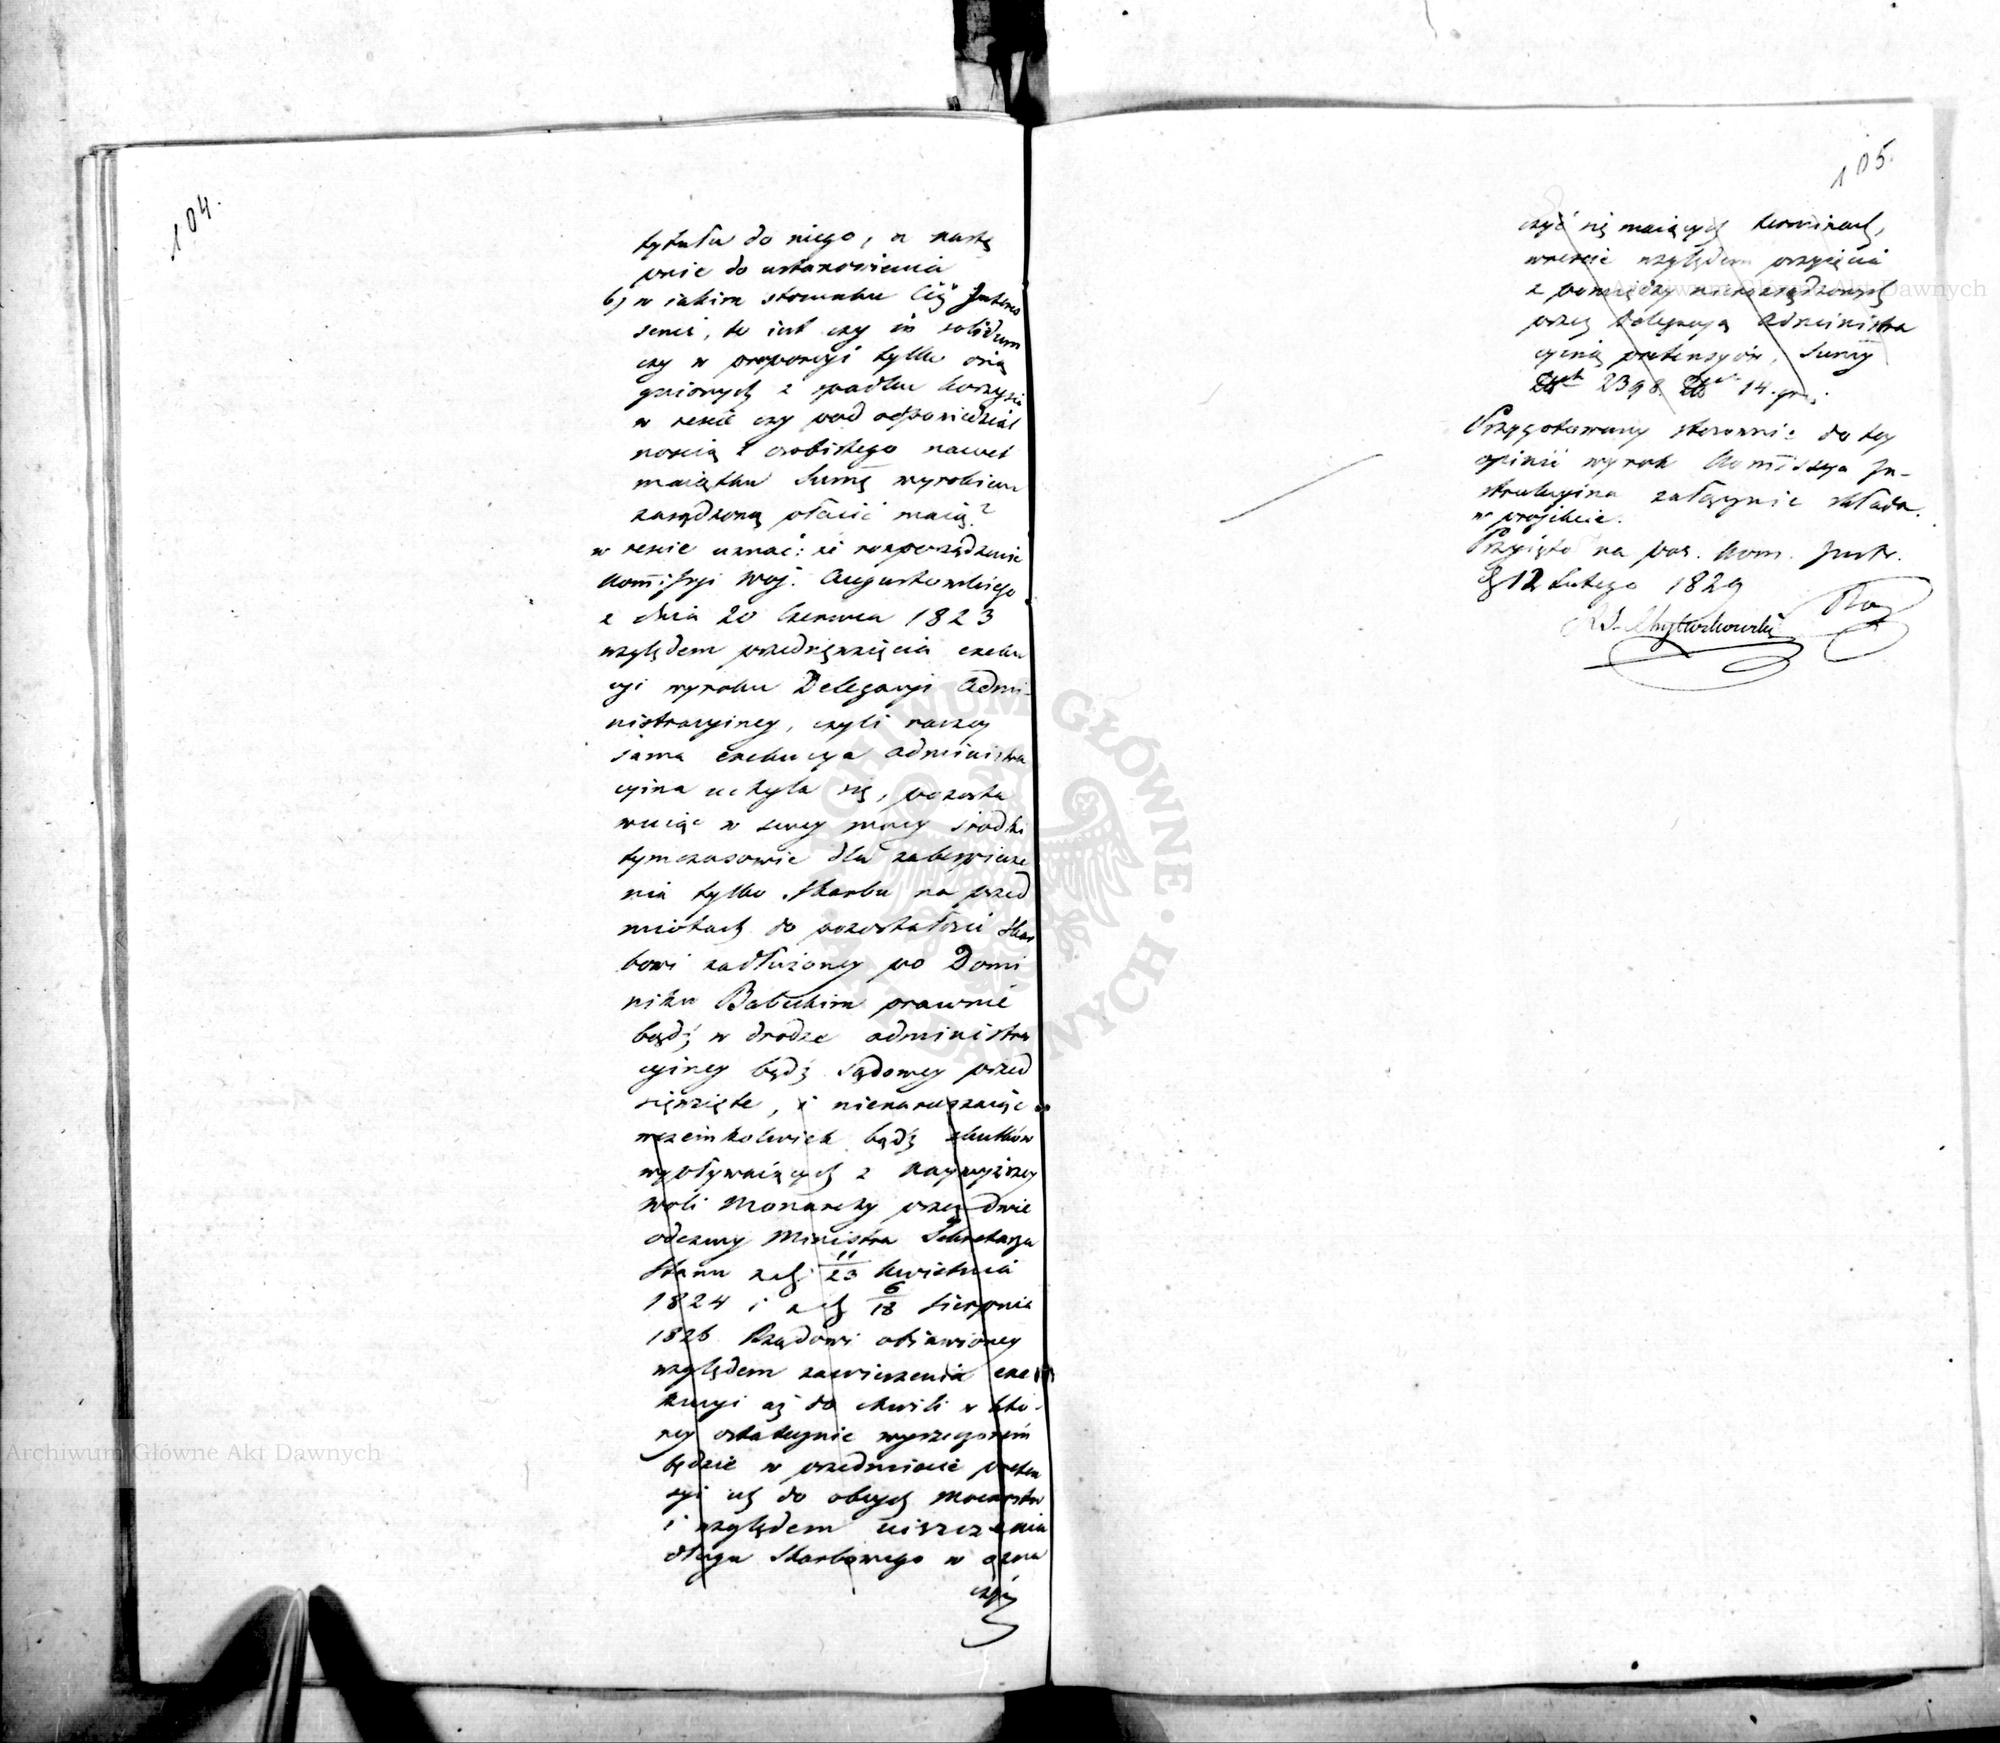 104.
tytułu do niego, a nastę
pnie do ustanowienia
b) w iakim stosunku Ciż Interes
senci, to iest czy in solidum
czy w proporcyi tylko osią
gnionych z spadku korzyści
w reście czy pod odpowiedzial
nością z osobistego nawet
maiątku Summę wyrokiem
zasądzoną płacić maią?
w reście uznać: że rozporządzenie
Kommissyi Woj. Augustowskiego
z dnia 20 Czerwca 1823
względem przedsięwzięcia exeku
cyi wyroku Delegacyi Admi-
nistracyiney, czyli raczey
sama exekucya administra
cyina uchyla się, pozosta
wuiąc w swey mocy środki
tymczasowie dla zabespiecze
nia tylko Skarbu na przed
miotach do pozostałości Skar
bowi zadłużoney po Domi
niku Batuckim prawnie
bądź w drodze administra
cyiney bądź sądowey przed
sięwzięte, i nienaruszaiąc w
wczemkolwiek bądź skutków
wypływaiących z Naywyższey
Woli Monarchy przez dwie
odezwy Ministra Sekretarza
Stanu z d. 11/23 Kwietnia
1824 i z d. 6/18 Sierpnia
1826 Rządowi obiawioney
względem zawieszenia exe
kucyi aż do chwili w któ-
rey ostatecznie wyrzeczonem
będzie w przedmiocie preten
syi ich do obcych Mocarstw
i względem uiszczenia
długu Skarbowego w ozna
czyć
105.
czyć się maiących terminach,
wreście względem przyięcia
z pomiędzy niezasądzonych
przez Delegacyą Administra
cyiną pretensyów, Summy
2398. 14. gr.
Przygotowany stosownie do tey
opinii wyrok Kommissya In-
strukcyina załącznie składa
w projekcie.
Przyięto na pos. Kom. Instr.
d. 12 Lutego 1829